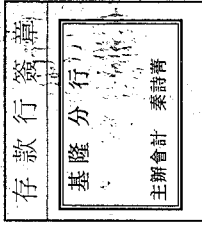 存款行簽章
基隆分行
主辦會計 秦詩菁